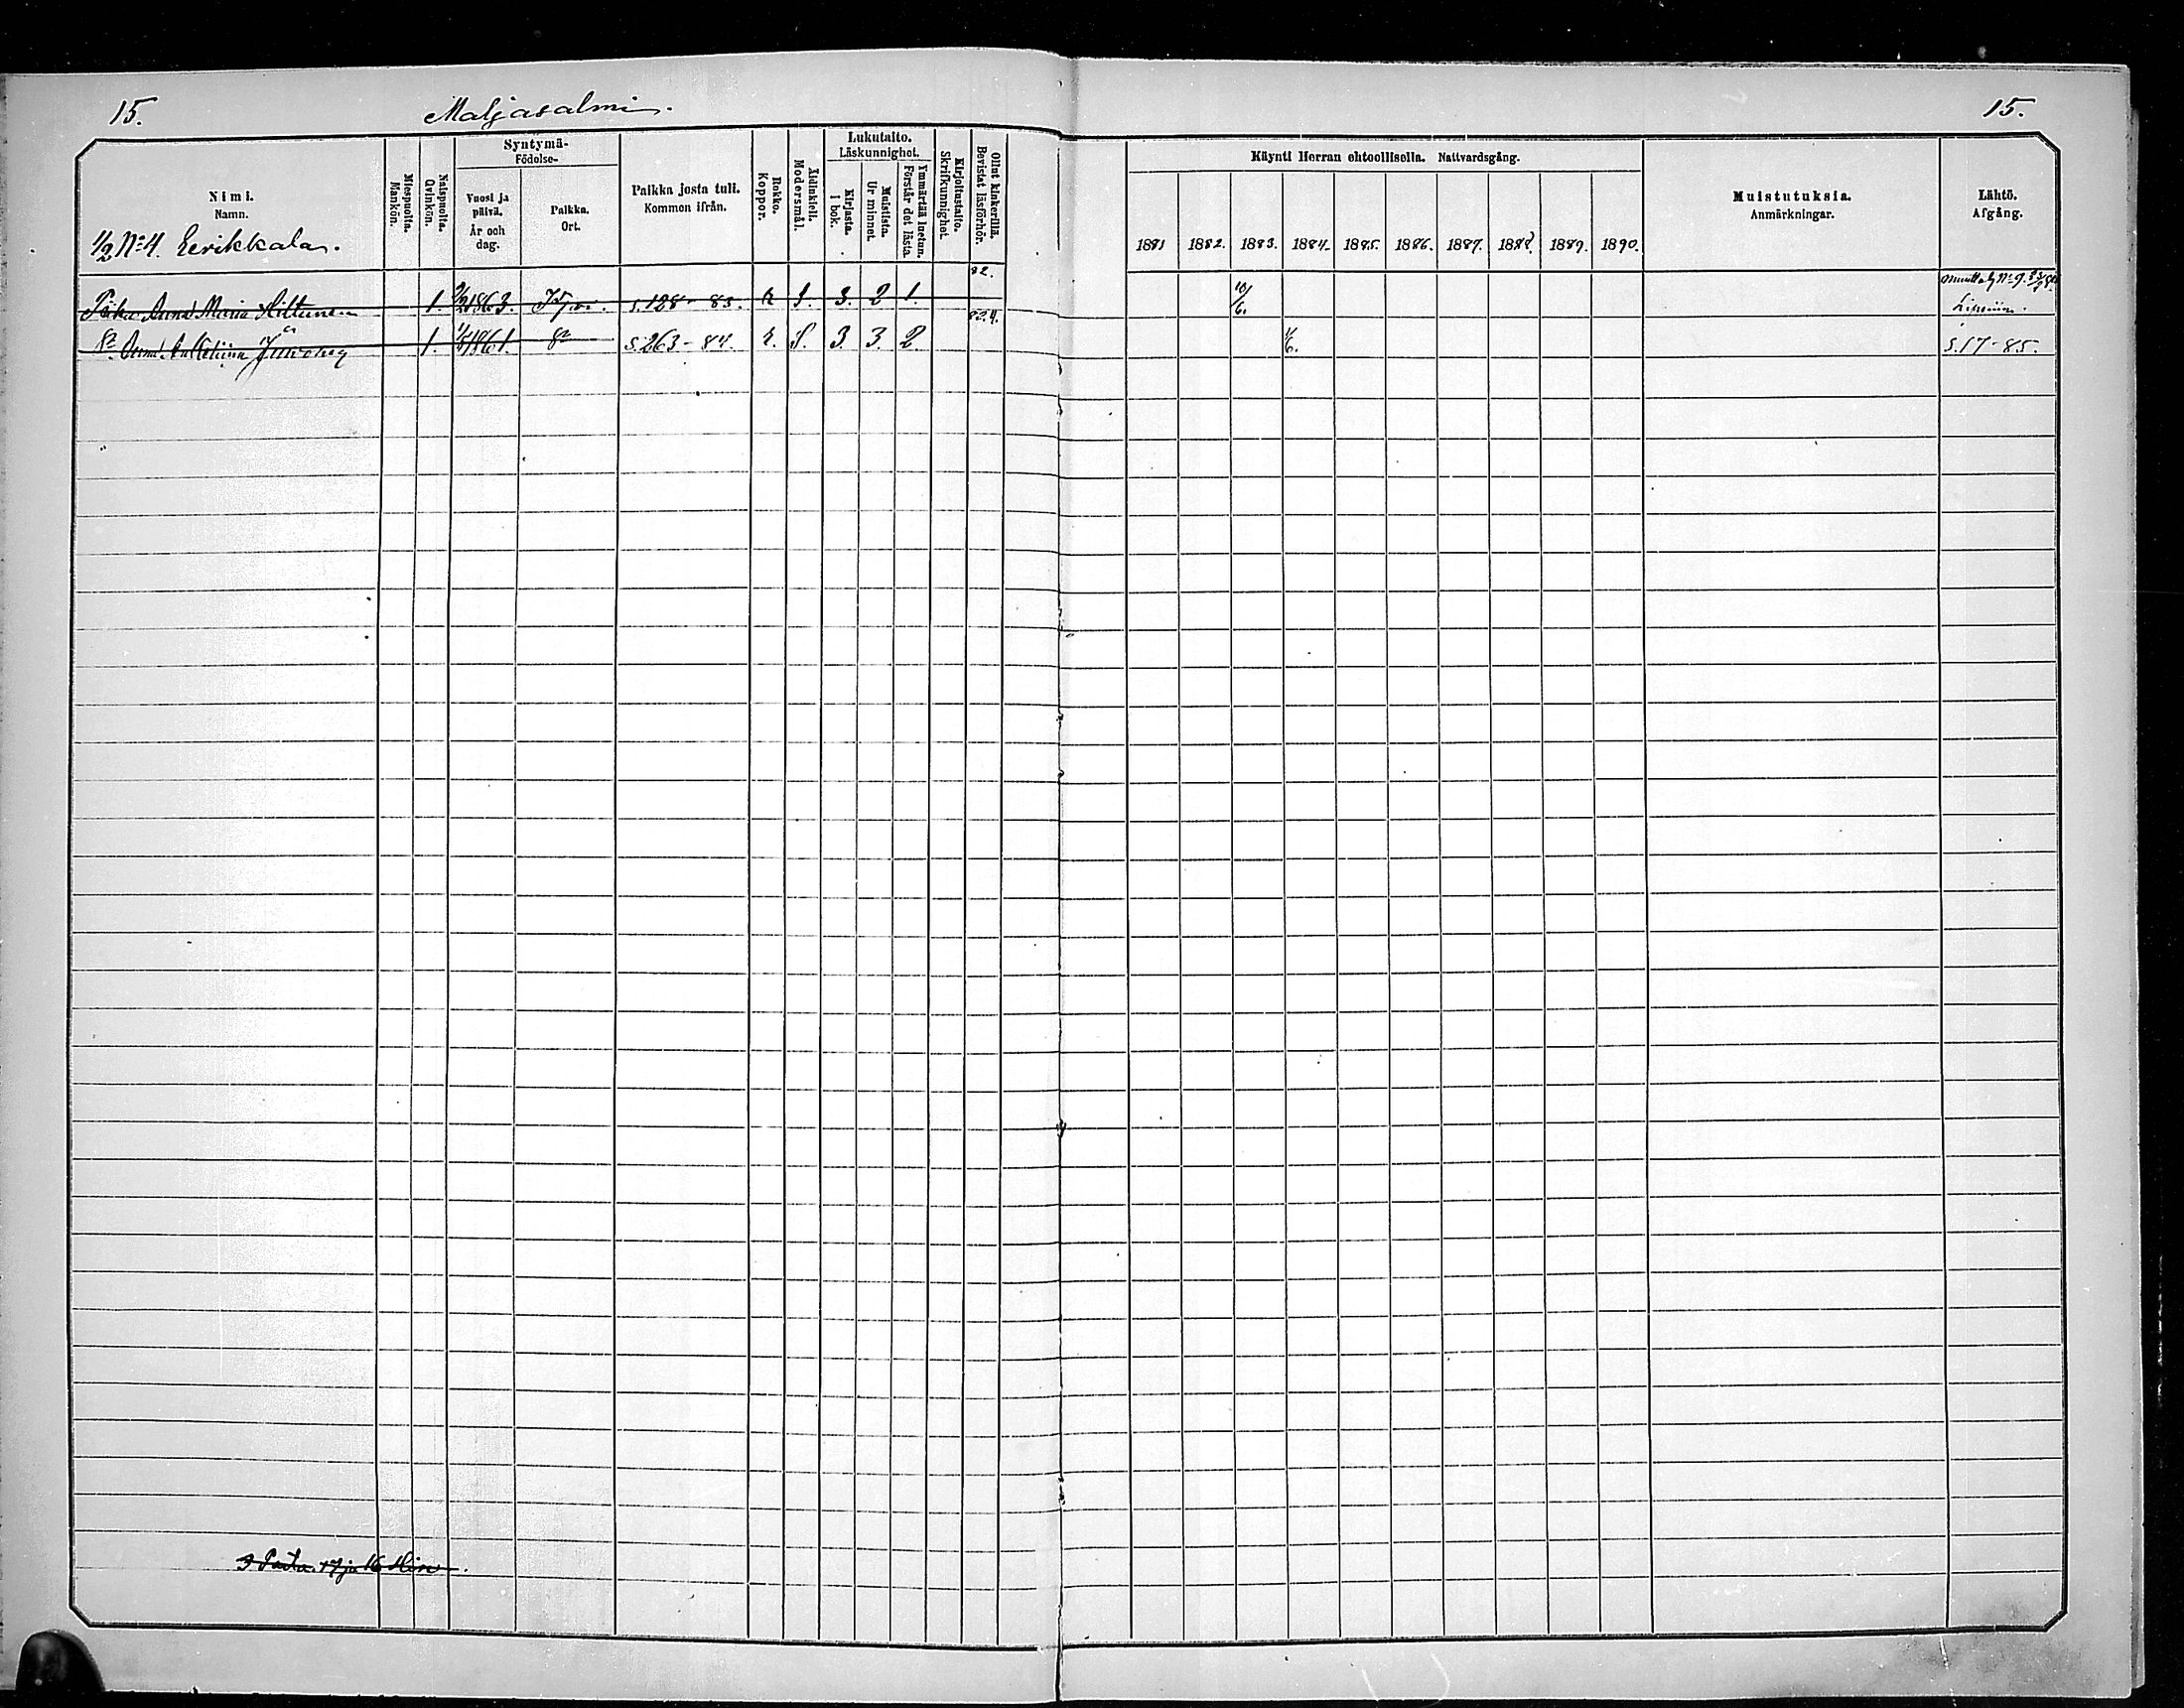 15. Maljasalmi. 15.
Nimi.
Namn.
½ No 4. Eerikkala.
Miespuolta.
Mankön.
Naispuolta.
Qvinkön.
Syntymä-
Födelse-
Vuosi ja
päivä.
År och
dag.
Paikka.
Ort.
Paikka josta tuli.
Kommen ifrån.
Rokko.
Koppor.
Äidinkieli.
Modersmål.
Lukutaito.
Läskunnighet.
Kirjasta.
I bok.
Muistista.
Ur minnet.
Ymmärtää luetun.
Förstår det lästa.
Kirjoitustaito.
Skrifkunnighet.
Ollut kinkerillä.
Bevistat läsförhör.
Käynti Herran ehtoollisella. Nattvardsgång.
1881 1882. 1883. 1884. 1885. 1886. 1887. 1888 1889. 1890.
Muistutuksia.
Anmärkningar.
Lähtö.
Afgång.
Piika Anna Maria Hiltunen 1. 1863. s. 128 - 83. r. S. 3. 2 1. 82. 10/6.
Anna 1. 1861. s. 263 - 84. r. S. 3. 3. 2. 1/6. s. 17 - 85.
17 ja 16